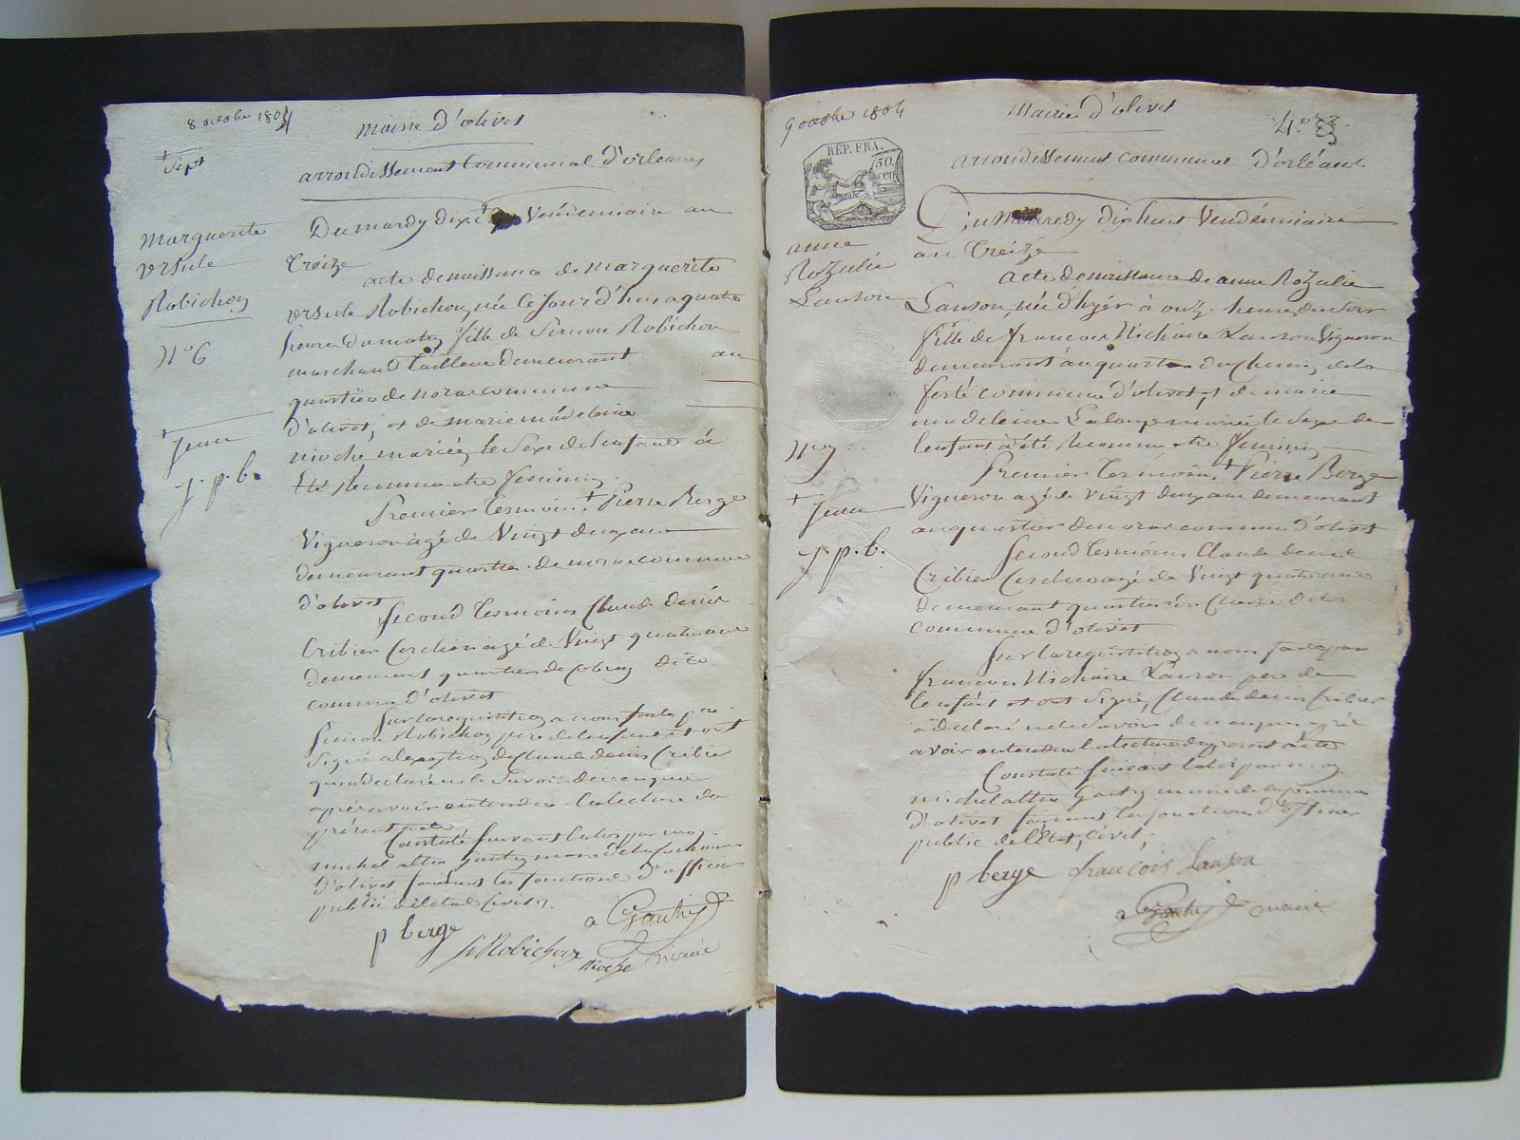 8 octobre 1804
Mairie d'olivet
arrondissement Communal d'orleans
Marguerite
ursule
Robichon
N° 6
Jean
j. p. b.
Du mardy dixé Vendemiaire an
treize
acte de naissance de marguerite
ursule Robichon, née Ce Jour d'huy a quatre
heure du matin fille de Simon Robichon
marchand tailleur demeurant au
quartier de commune
d'olivet, et de marie madelaine
mariée, le Sexe de Lenfant à
été Reconnu etre feminin.
Premier temoin + Pierre Berge
Vigneron agé de Vingt deux ans
demeurant quartier de commune
d'olivet
Second temoins Claude denis
Cribier agé de Vingt quatre ans
demeurant quartier de dite
commune d'olivet
Sur la requisition a nous faite par
Simon Robichon pere de Lenfant et ont
Signé a lexeption de Claude denis Cribier
qui a declaré ne le Savoir de ce enquis
apres avoir entendu Lalecture du
présent acte
Constaté Suivant laloi par moy
michel gautry maire de la commune
d'olivet faisant les fonctions d'officier
public de letat Civil.
p berge
a Gautry
S Robichon
Mioche
maire
9 octobre 1804
Mairie d'olivet
4.e
REP. FRA.
50.
arrondissement communal d'orléans
anne
Rozalie
Lanson
N° 7
Jean
j p. b.
Du mercredy dix huit Vendémiaire
an treize
acte de naissance de anne Rozalie
Lanson, née d'hyér à onze heure du soir
fille de francois Nichaise Lanson Vigneron
demeurant au quartier du chemin de la
ferté commune d'olivet, et de marie
madelaine mariée le Sexe de
lenfant a été Reconnu etre feminin,
Premier temoin, + Pierre Berge
Vigneron agé de vingt deux ans demeurant
au quartier commune d'olivet
Second temoins Claude denis
Cribier agé de Vingt quatre ans
demeurant quartier dite
commune d'olivet
Sur la requisition a nous faite par
francois Nichaise Lanson pere de
lenfant et ont Signé, Claude denis Cribier
a declaré ne le Savoir de ce enquis, aprés
avoir entendu la lecture du present acte
Constaté Suivant laloi par moy
michel gautry maire de la commune
d'olivet faisant les fonctions d'officier
public de lEtat, Civil;
p berge francois Lanson
a Gautry maire